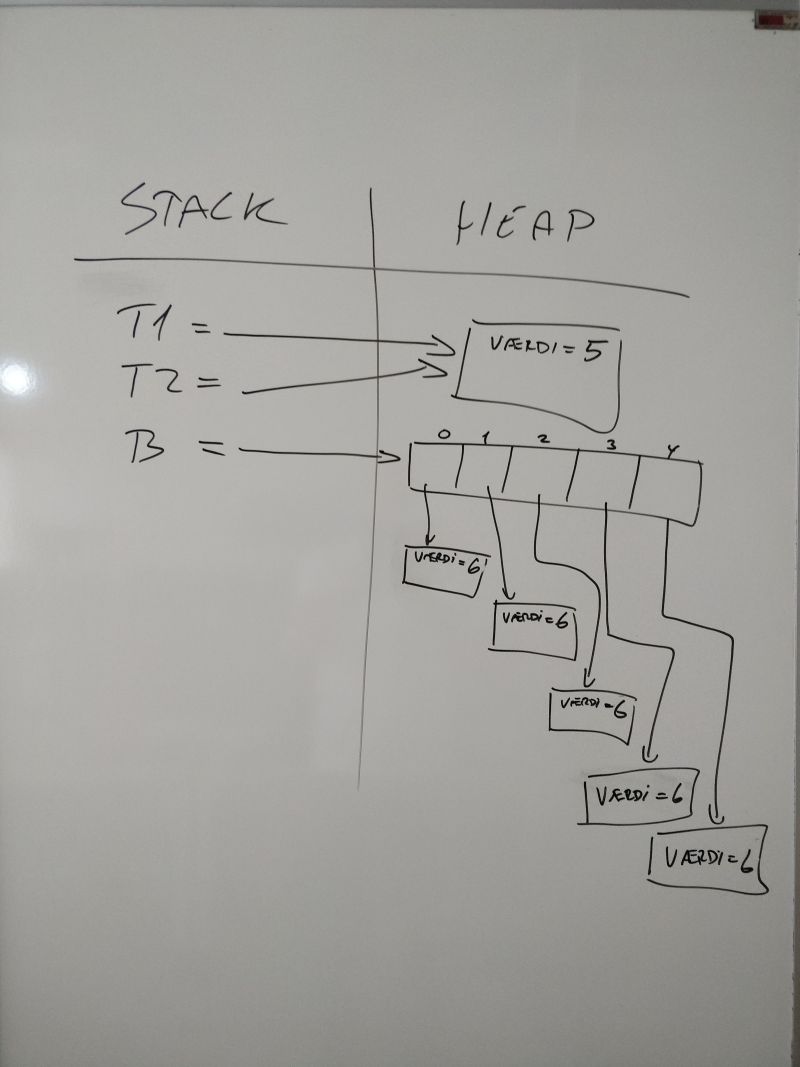 STACK HEAP
T1 = VÆRDI = 5
T2 =
B =
0 1 2 3 4
VÆRDI = 6
VÆRDI = 6
VÆRDI = 6
VÆRDI = 6
VÆRDI = 6